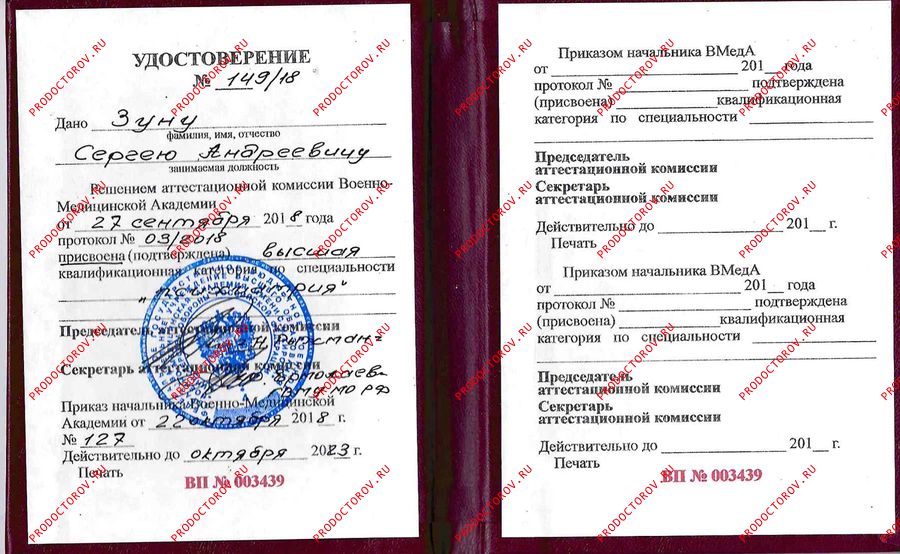 УДОСТОВЕРЕНИЕ
№ 149/18
Дано Зуну
фамилия, имя, отчество
Сергею Андреевичу
занимаемая должность
Решением аттестационной комиссии Военно-
Медицинской Академии
от 27 сентября 2018 года
протокол № 03/2018
присвоена (подтверждена) высшая
квалификационная категория по специальности
"Психиатрия"
Председатель аттестационной комиссии
Секретарь аттестационной комиссии
ВМА МО РФ
Приказ начальника Военно-Медицинской
Академии от 22 октября 2018 г.
№ 127
Действительно до октября 2023 г.
Печать
ВП № 003439
Приказом начальника ВМедА
от 201 года
протокол № подтверждена
(присвоена) квалификационная
категория по специальности
Председатель
аттестационной комиссии
Секретарь
аттестационной комиссии
Действительно до 201 г.
Печать
Приказом начальника ВМедА
от 201 года
протокол № подтверждена
(присвоена) квалификационная
категория по специальности
Председатель
аттестационной комиссии
Секретарь
аттестационной комиссии
Действительно до 201 г.
Печать
ВП № 003439
PRODOCTOROV.RU